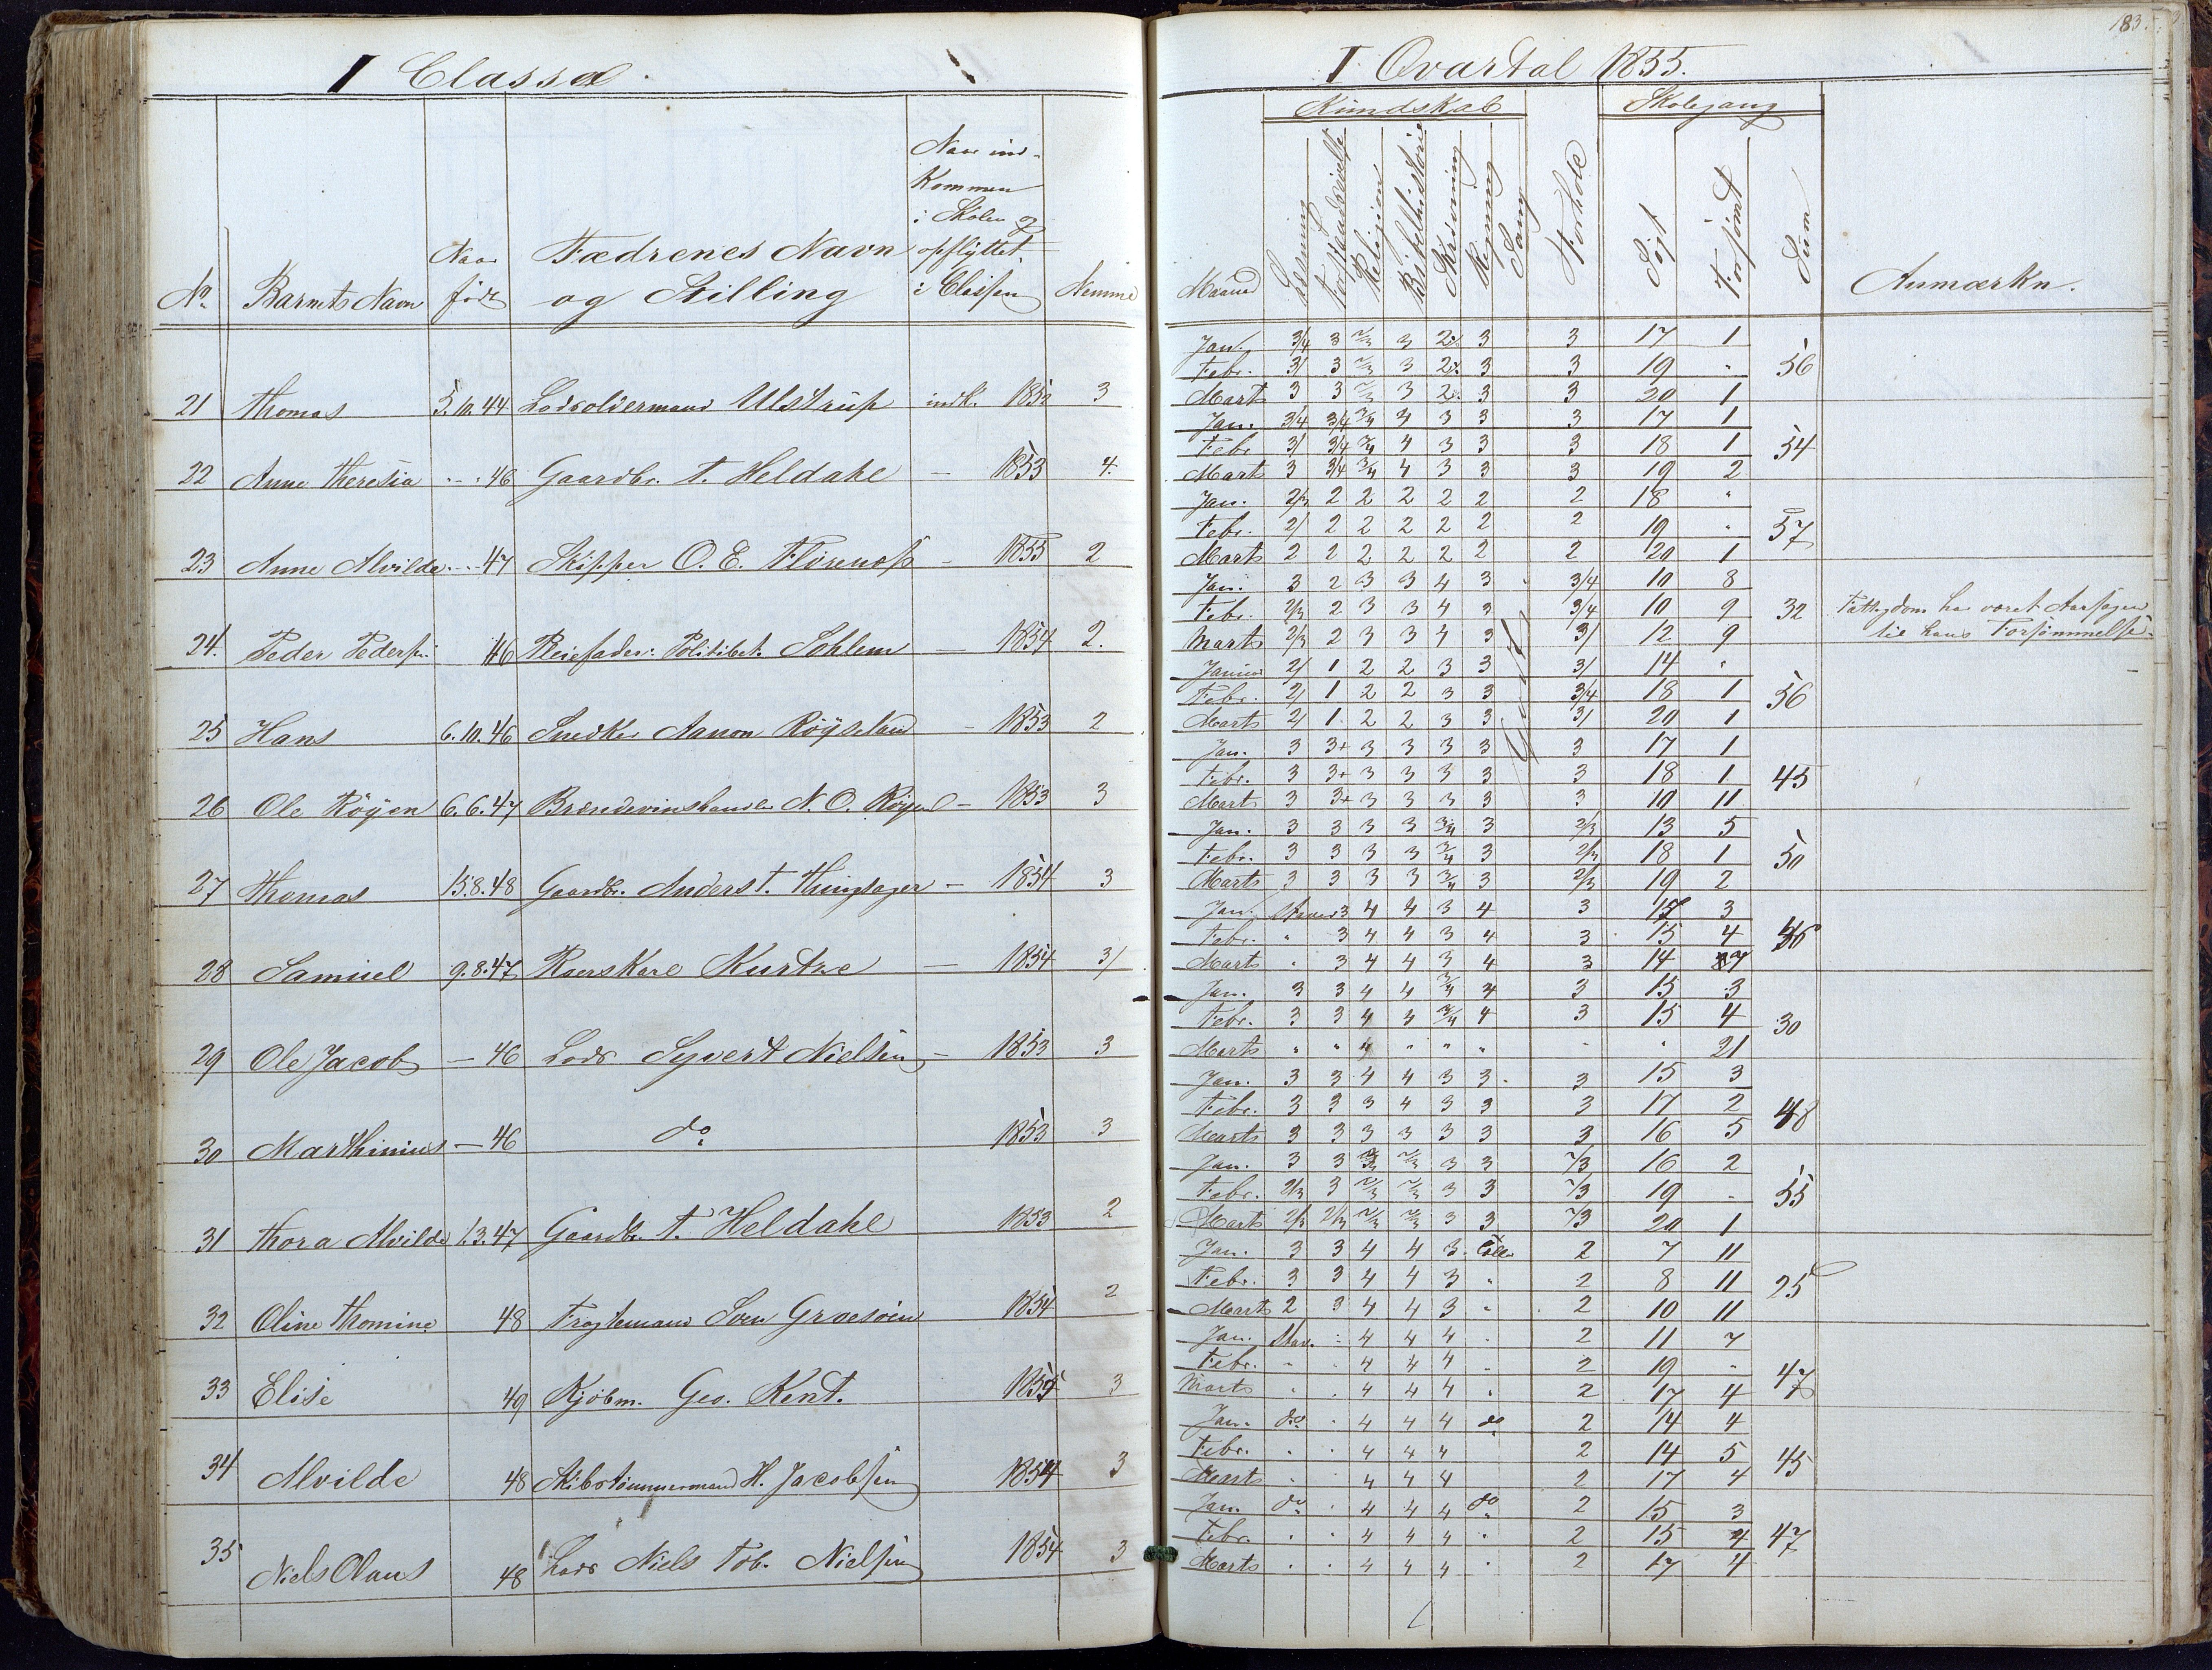 183.
I Classe.
I Qvartal 1855.
No. Barnets Navn Naar født Fædrenes Navn og Stilling Naar ind-kommen i Skolen og opflyttet i Classen Nemme
21 Thomas 5.10.44 Lodsoldermand Ulstrup indk. 1850 3
22 Anne Theresia - - 46 Gaardbr. T. Heldahl — 1853 4.
23 Anne Alvilde - - 47 Skipper O. E. - 1855 2
24. Peder Pedersen 46 Pleiefader: Politibet. Sohlem — 1854 2.
25 Hans 6.10.46 Snedker Aanon Røyseland - 1853 2
26 Ole Røyen 6.6.47 Brændevinshandler N. O. Røyen - 1853 3
27 Thomas 15.8.48 Gaardbr. Anders T. Thingsager - 1854 3
28 Samuel 9.8.47 Kurtze — 1854 3/
29 Ole Jacob — 46 Lods Syvert Nielsen - 1853 3
30 Marthinius — 46 do 1853 3
31 Thora Alvilde 1.3.47 Gaardbr. T. Heldahl 1853 2
32 Oline Thomine 48 Fragtemand Sven Græsøien 1854 2
33 Elise 49 Kjøbm. Geo. Kent. 1854 3
34 Alvilde 48 Skibstømmermand H. Jacobsen 1854 3
35 Niels Olaus 48 Lods Niels Tob. Nielsen 1854 3
Kundskab Skolegang
Maaned Læsning Religion Bibelhistorie Skrivning Regning Sang Forhold Søgt Forsømt Sum Anmærkn.
Jan. 3/4 3 2/3 3 2/3 3 3 17 1
Febr. 3/ 3 2/3 3 2/3 3 3 19 " 56
Marts 3 3 2/3 3 2/3 3 3 20 1
Jan. 3/4 3/4 3/4 4 3 3 3 17 1
Febr 3/ 3/4 3/4 4 3 3 3 18 1 54
Marts 3 3/4 3/4 4 3 3 3 19 2
Jan. 2/3 2 2 2 2 2 2 18 "
Febr. 2/ 2 2 2 2 2 2 19 " 57
Marts 2 2 2 2 2 2 2 20 1
Jan. 3 2 3 3 4 3 3/4 10 8
Febr. 2/3 2 3 3 4 3 3/4 10 9 32 Fattigdom har været Aarsagen
Marts 2/3 2 3 3 4 3 3/ 12 9 til hans Forsømmelse.
Godt
Januar 2/ 1 2 2 3 3 3/ 14 "
Febr. 2/ 1 2 2 3 3 3/4 18 1 56
Marts 2/ 1 2 2 3 3 3/ 20 1
Jan. 3 3+ 3 3 3 3 3 17 1
Febr. 3 3+ 3 3 3 3 3 18 1 45
Marts 3 3+ 3 3 3 3 3 10 11
Jan. 3 3 3 3 3/4 3 2/3 13 5
Febr. 3 3 3 3 3/4 3 2/3 18 1 50
Marts 3 3 3 3 3/4 3 2/3 19 2
Jan. Staver 3 4 4 3 4 3 15 3
Febr. " 3 4 4 3 4 3 15 4
Marts " 3 4 4 3 4 3 14 7
Jan. 3 3 4 4 3/4 4 3 15 3
Febr. 3 3 4 4 3/4 4 3 15 4 30
Marts " " " " " " " 21
Jan. 3 3 4 4 3 3 3 15 3
Febr. 3 3 3 4 3 3 3 17 2 48
Marts 3 3 3 3 3 3 3 16 5
Jan. 3 3 2/3 2/3 3 3 2/3 16 2
Febr. 2/3 3 2/3 2/3 3 3 2/3 19 - 55
Marts 2/3 2/3 2/3 2/3 3 3 2/3 20 1
Jan. 3 3 4 4 3 2 7 11
Febr. 3 3 4 4 3 " 2 8 11 25
Marts 2 3 4 4 3 " 2 10 11
Jan. Stav. " 4 4 4 " 2 11 7
Febr. " " 4 4 4 " 2 19 " 47
Marts " " 4 4 4 " 2 17 4
Jan. do " 4 4 4 do 2 14 4
Febr. " " 4 4 4 2 14 5 45
Marts " 4 4 4 2 17 4
Jan. do " 4 4 4 do 2 15 3
Febr. " " 4 4 4 " 2 15 4 47
Marts " " 4 4 4 " 2 17 4